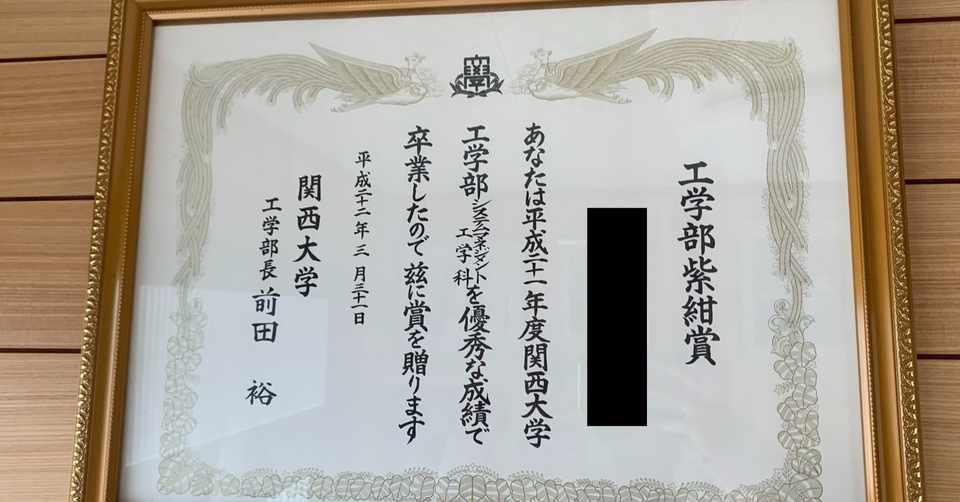 工学部紫紺賞
あなたは平成二十一年度関西大学
工学部システムマネジメント工学科を優秀な成績で
卒業したので茲に賞を贈ります
平成二十二年三月三十一日
関西大学
工学部長 前田 裕